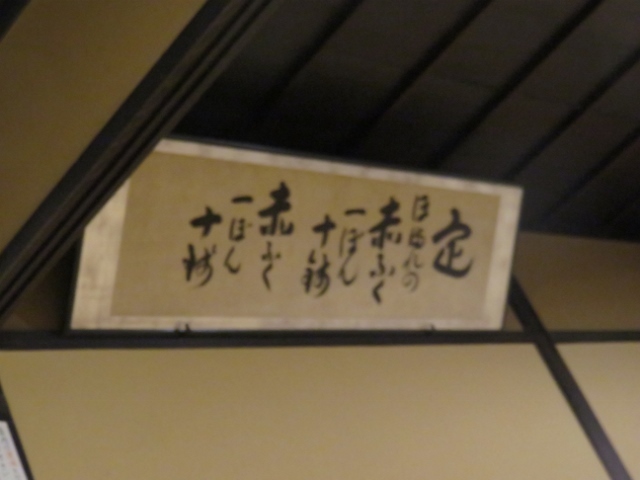 定
ほまれの
赤ふく
一ぼん
十銭
赤ふく
一ぼん
十銭